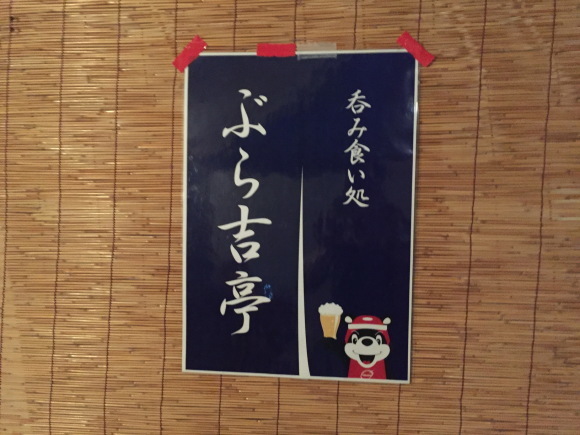 呑み食い処
ぶら吉亭